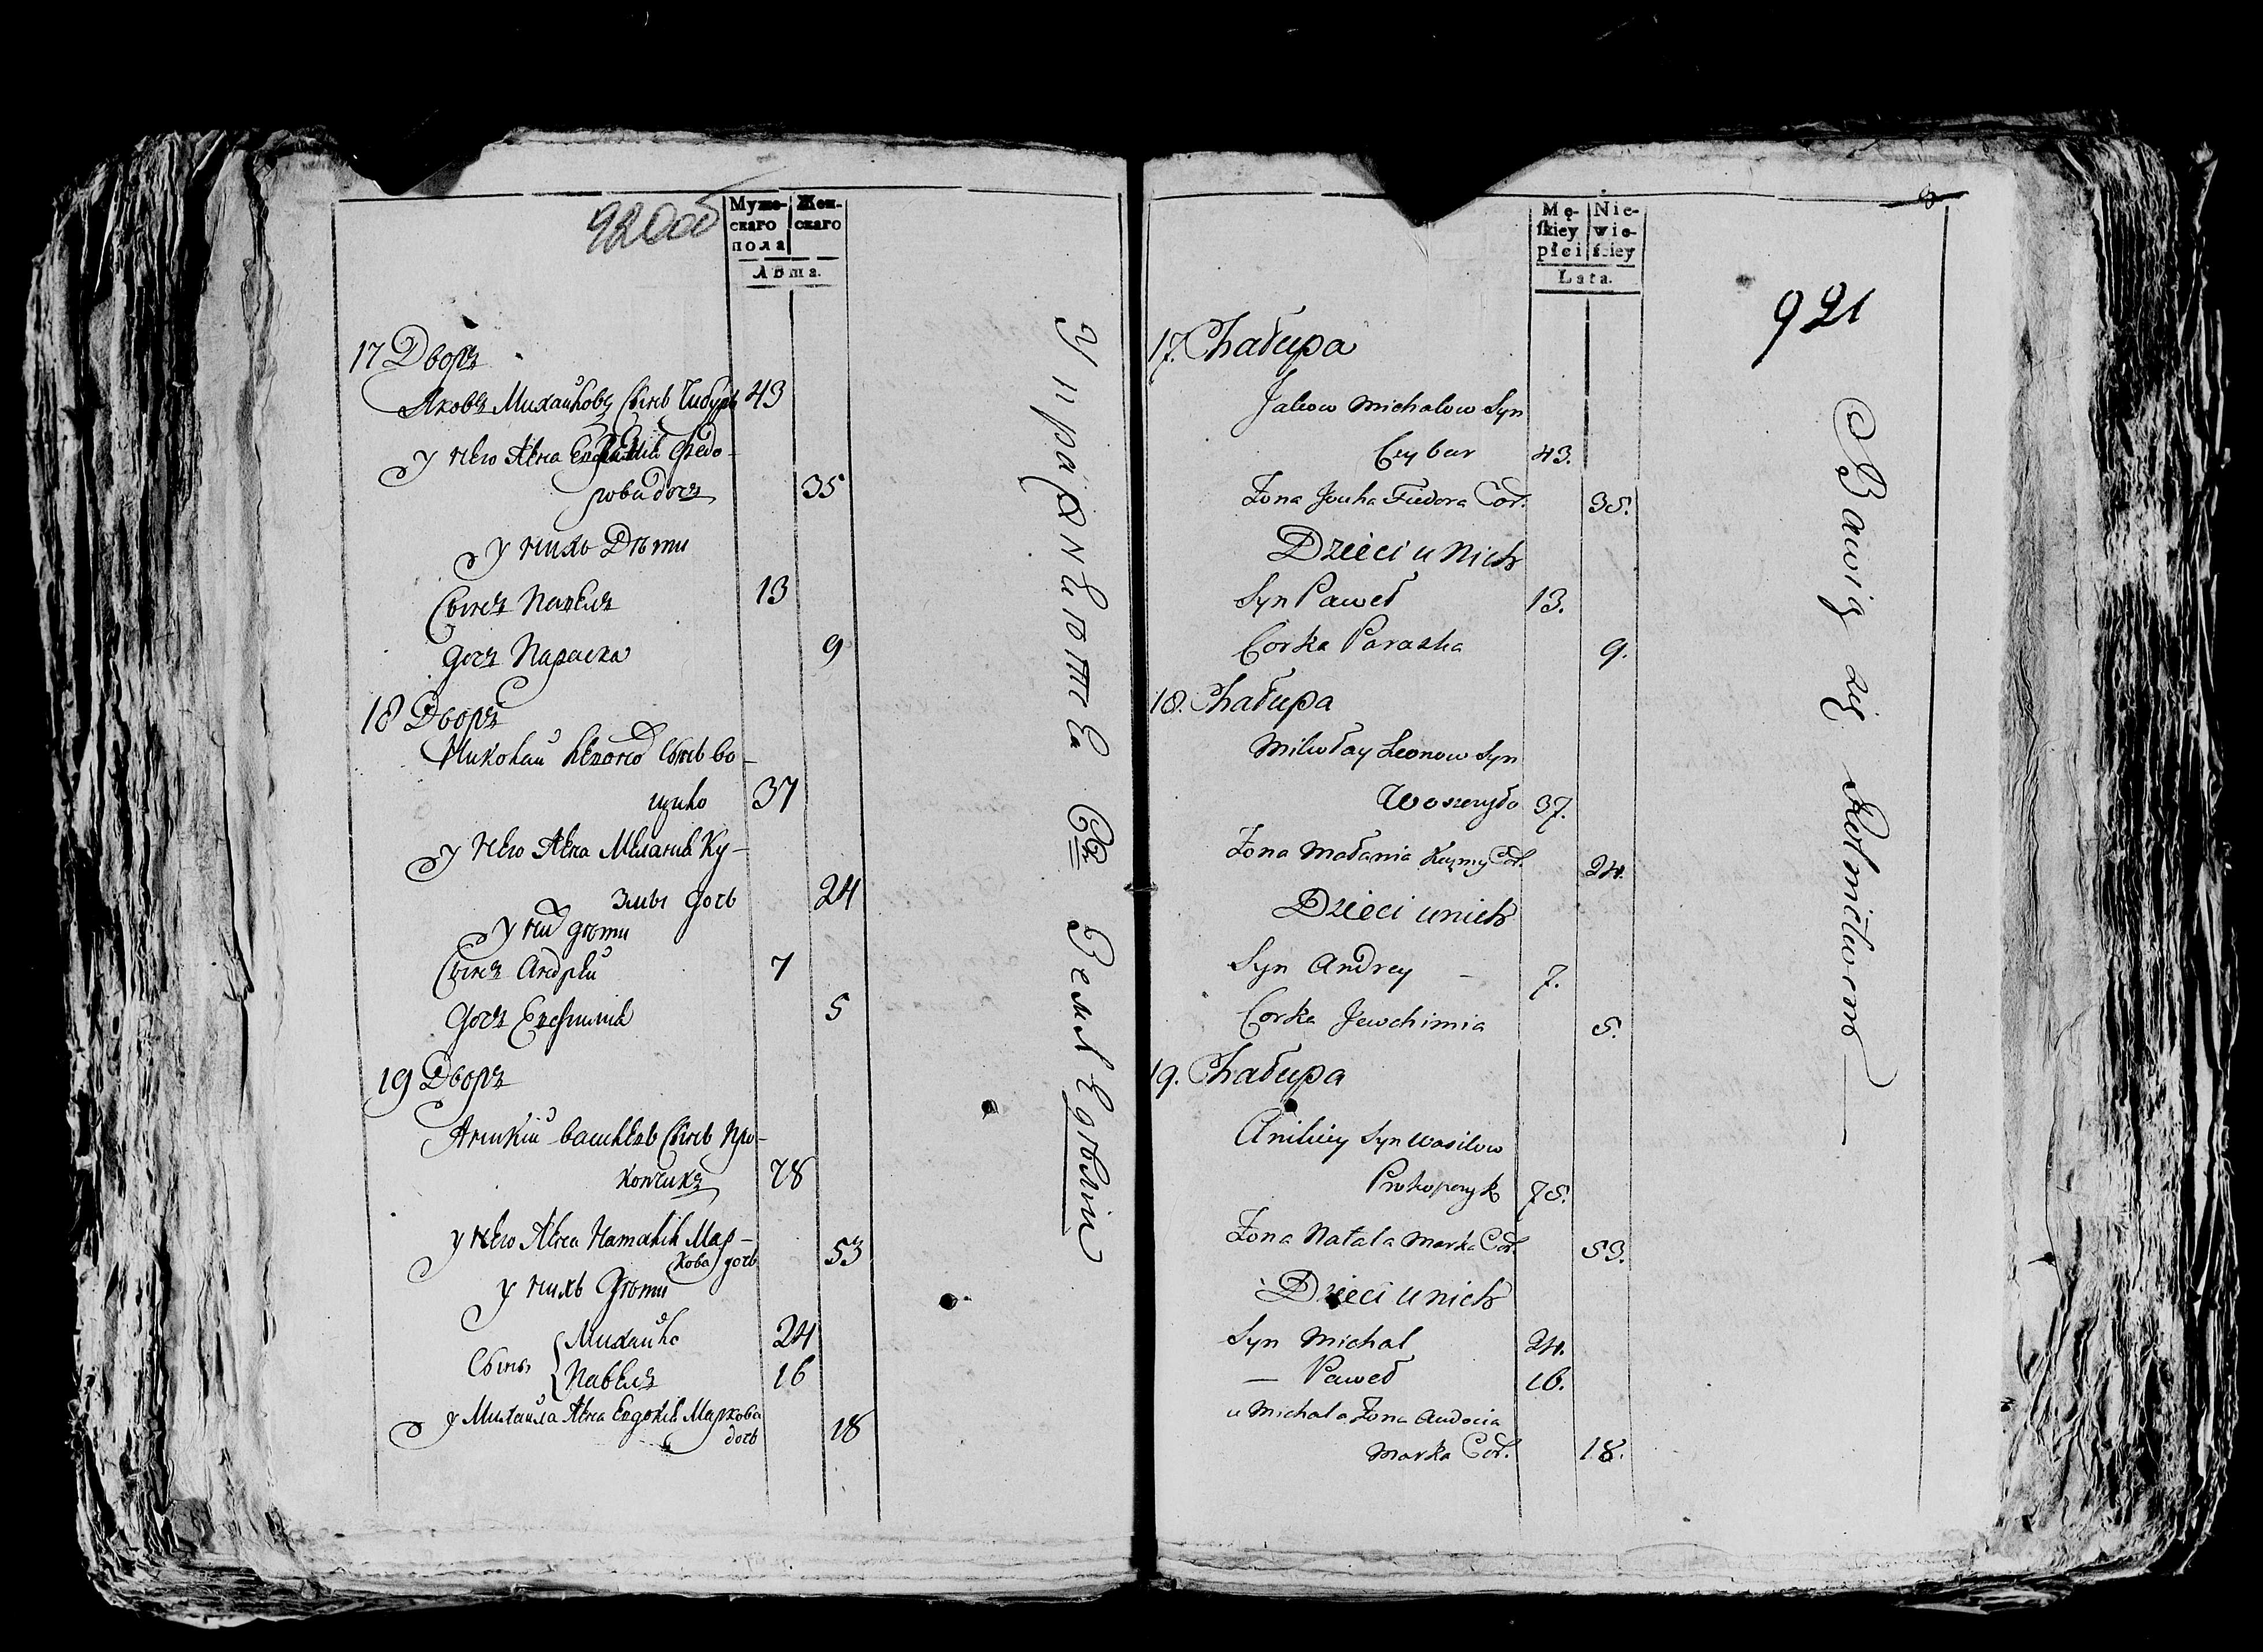 920об
Муже-
скаго
пола
Жен-
скаго
Лѣта.
17 Дворъ
Яковъ Михайловъ Сынъ Цибуръ 43
У него Жена Федо-
рова дочъ 35
У нихъ Дѣти
Сынъ Павелъ 13
Дочъ Параска 9
18 Дворъ
Николай Леоновъ Сынъ Во-
щило 37
У него Жена Меланиѣ Ку-
змы дочь 24
У них дѣти
Сынъ Андрѣй 7
Дочъ Евхимиѣ 5
19 Дворъ
Аникій Василевъ Сынъ Про-
копчикъ 78
У него Жена Наталиѣ Мар-
кова дочь 53
У нихъ Дѣти
Сынъ Михайло 24
Павелъ 16
У Михаила Жена Евдокиѣ Маркова
дочь 18
Упражняются въ Земледѣлии
Mę-
skiey
płci
Nie-
wie-
ściey
Lata.
921
17. Chałupa
Jakow Michałow Syn
Cybur 43.
Zona Jouha Fiedora Cór. 35.
Dzieci u Nich
Syn Paweł 13.
Corka Paraska 9.
18. Chałupa
Mikołay Leonow Syn
Woszczyło 37.
Zona Małania Kuzmy Cór. 24.
Dzieci u nich
Syn Andrey 7.
Corka Jewchimia 5.
19. Chałupa
Anikiey Syn Wasilow
Prokopczyk 78.
Zona Natala Marka Cór. 53.
Dzieci u nich
Syn Michal 24.
— Paweł 16.
u Michala Zona Audocia
Marka Cór. 18.
Bawią się Rolnictwem